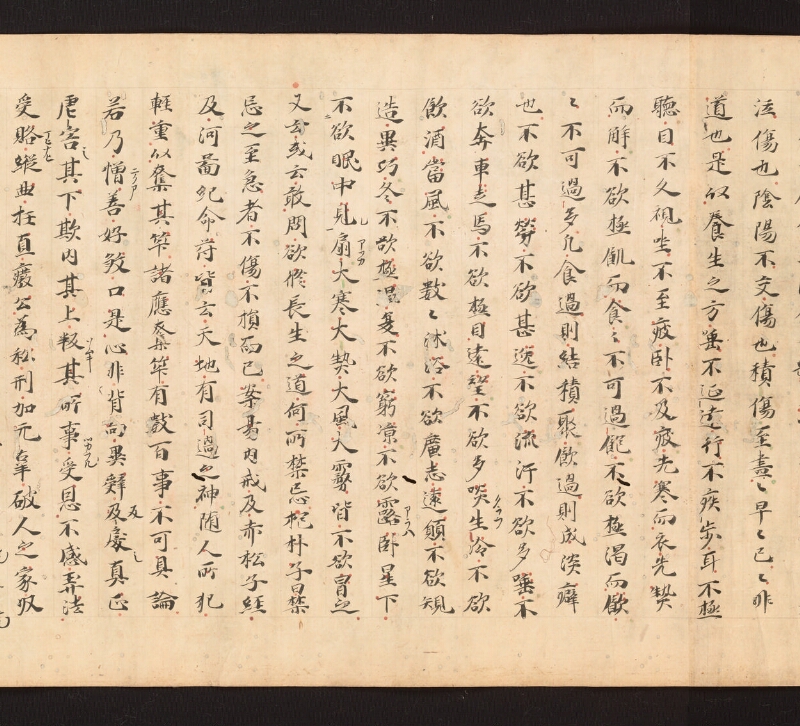 泣傷也陰陽不交傷也積傷至盡〻早〻已〻非
道也是以養生之方唾不延遠行不疾歩耳不極
聽目不久視坐不至疲卧不及疲先寒而衣先熱
而解不欲極飢而食〻不可過飽不欲極渴而飲
〻不可過多凡食過則結積聚飲過則成淡癖
也不欲甚勞不欲甚逸不欲流汗不欲多唾不
欲奔車走馬不欲極目遠望不欲多啖生冷不欲
飲酒當風不欲數〻沐浴不欲廣志遠願不欲規
造異巧冬不欲極温夏不欲窮凉不欲露卧星下
不欲眠中見扇大寒大熱大風大霧皆不欲冒之
又云或云敢問欲修長生之道何所禁忌抱朴子曰禁
忌之至急者不傷不損而已案易内戒及赤松子經
及河圖紀命符皆云天地有司過之神随人所犯
輕重以奪其筭諸應奪筭有數百事不可具論
若乃憎善好殺口是心非背向異辞反戾真正
虐害其下欺罔其上叛其所事受恩不感弄法
受賂縱曲枉直廢公為私刑加无辜破人之家収